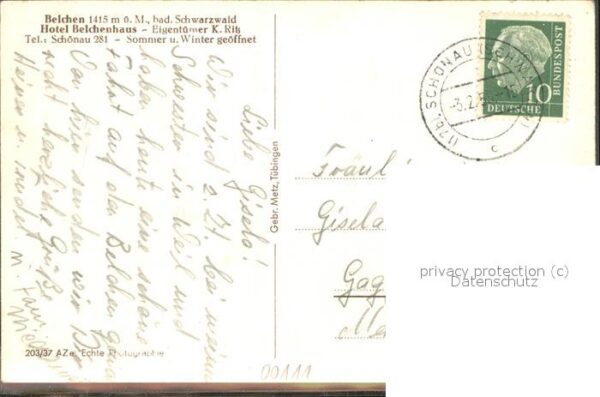 Belchen 1415 m ü. M., bad. Schwarzwald
Hotel Belchenhaus - Eigentümer K. Ritz
Tel.: Schönau 281 - Sommer u. Winter geöffnet
Liebe Gisela!
Wir sind z. Zt bei meiner
Schwester in Weil und
haben heute eine schöne
Fahrt auf den Belchen gemacht
Von hier senden wir Dir
recht herzliche Grüße
Gebr. Metz, Tübingen
203/37 AZe. Echte Photographie
(17b) SCHÖNAU (SCHWARZW)
-3.2.5
c
10
DEUTSCHE
BUNDESPOST
Fräul
Gisela
Gag
privacy protection (c)
Datenschutz
00111